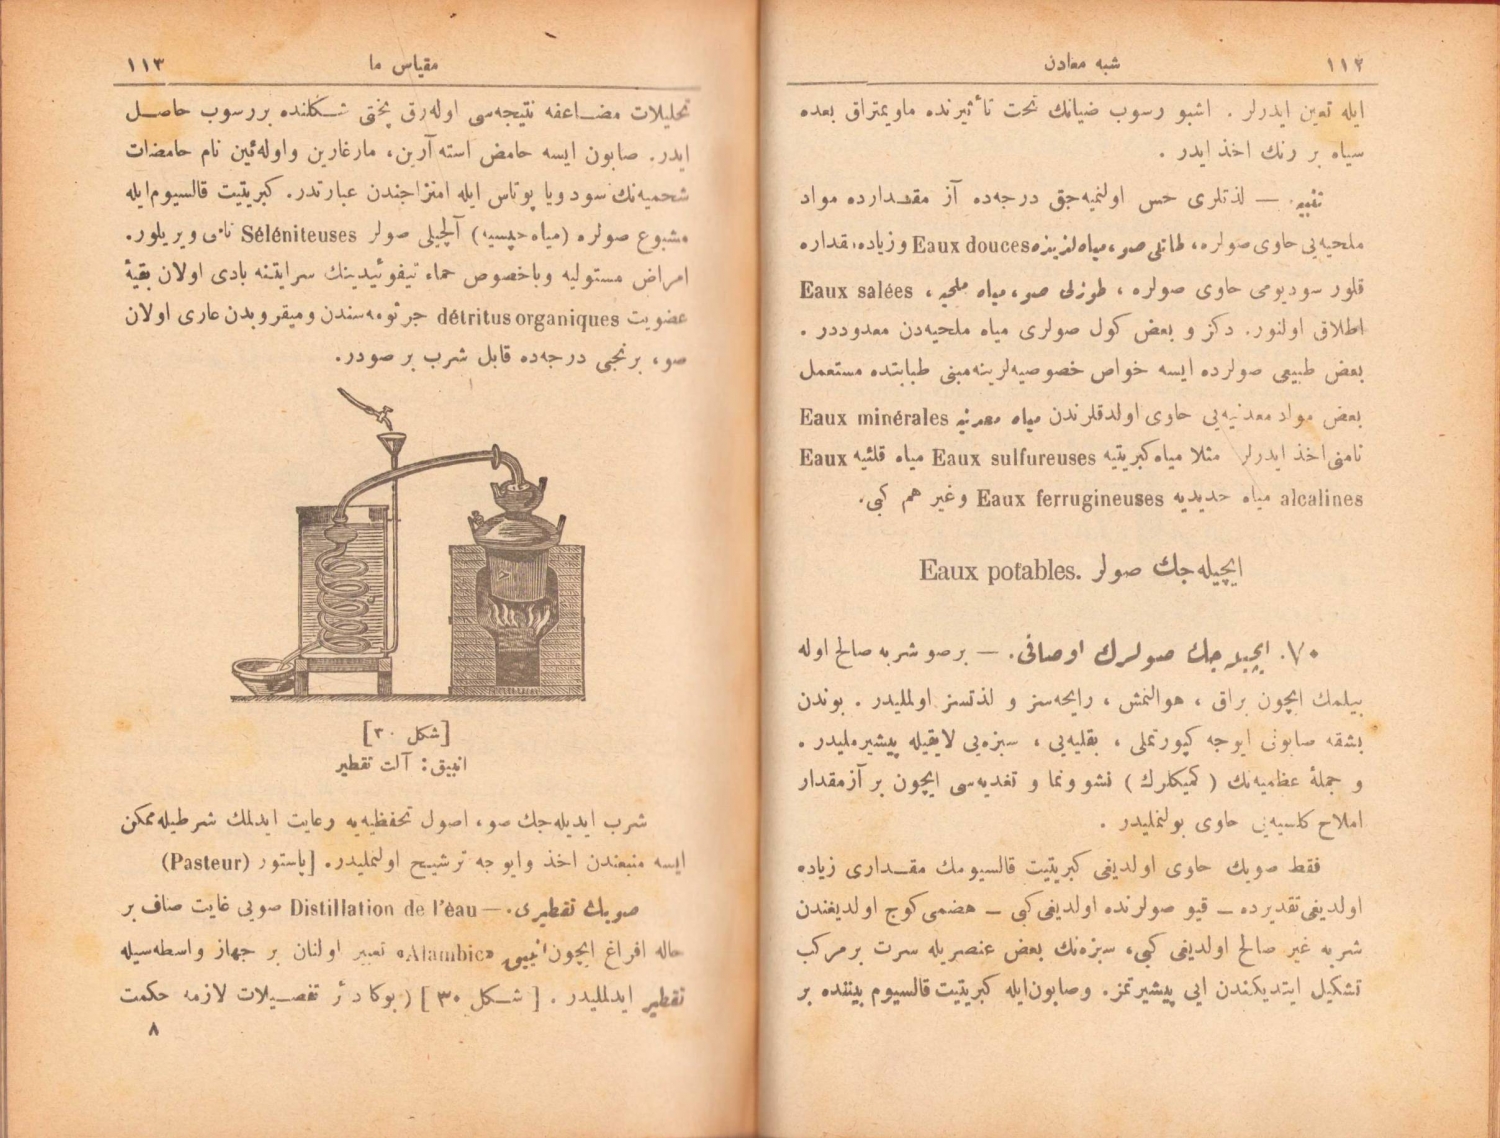 ١١٢
شبه معادن
ایله تعیین ایدرلر . اشبو رسوب ضیانك تحت تأثیرنده ماویمتراق بعده
سیاه بر رنك اخذ ایدر .
تنبیه. — لذتلری حس اولنمیه‌جق درجه‌ده آز مقدارده مواد
ملحیه‌یی حاوی صولره، طاتلی صو، میاه لذیذه Eaux douces و زیاده مقداره
قلور سودیومی حاوی صولره ، طوزلی صو، میاه ملحیه ، Eaux salées
اطلاق اولنور. دكز و بعض كول صولری میاه ملحیه‌دن معدوددر .
بعض طبیعی صولرده ایسه خواص خصوصیه‌لرینه مبنی طبابتده مستعمل
بعض مواد معدنیه‌یی حاوی اولدقلرندن میاه معدنیه Eaux minérales
نامنی اخذ ایدرلر مثلا میاه كبریتیه Eaux sulfureuses میاه قلئیه Eaux
alcalines میاه حدیدیه Eaux ferrugineuses وغیر هم كبی.
ایچیله‌جك صولر .Eaux potables
٧٠. ایچیله‌جك صولرك اوصافی. — بر صو شربه صالح اوله
بیلمك ایچون براق ، هوالنمش ، رایحه‌سز و لذتسز اولملیدر . بوندن
بشقه صابونی ایوجه كپورتملی ، بقلیه‌یی ، سبزه‌یی لایقیله پیشیرملیدر .
و جملهٔ عظمیه‌نك ( كمیكلرك ) نشو ونما و تغدیه‌سی ایچون بر آز مقدار
املاح كلسیه‌یی حاوی بولنملیدر .
فقط صویك حاوی اولدیغی كبریتیت قالسیومك مقداری زیاده
اولدیغی تقدیرده – قیو صولرنده اولدیغی كبی – هضمی كوج اولدیغندن
شربه غیر صالح اولدیغی كبی، سبزه‌نك بعض عنصریله سرت بر مركب
تشكیل ایتدیكندن ایی پیشیرتمز. وصابون ایله كبریتیت قالسیوم بیننده بر
مقیاس ما
١١٣
تحلیلات مضاعفه نتیجه‌سی اوله‌رق پختی شكلنده بر رسوب حاصل
ایدر. صابون ایسه حامض استه آرین، مارغارین واوله‌ئین نام حامضات
شحمیه‌نك سود ویا پوتاس ایله امتزاجندن عبارتدر. كبریتیت قالسیوم ایله
مشبوع صولره (میاه جپسیه) آلچیلی صولر Séléniteuses نامی ویریلور.
امراض مستولیه وباخصوص حماء تیفوئیدینك سرایتنه بادی اولان بقیهٔ
عضویت détritus organiques جرثومه‌سندن ومیقروبدن عاری اولان
صو، برنجی درجه‌ده قابل شرب بر صودر.
[شكل ٣٠]
انبیق: آلت تقطیر
شرب ایدیله‌جك صو، اصول تحفظیه‌یه رعایت ایدلمك شرطیله ممكن
ایسه منبعندن اخذ وایوجه ترشیح اولنملیدر. [پاستور (Pasteur)
صویك تقطیری. — Distillation de l’éau صویی غایت صاف بر
حاله افراغ ایچون انبیق «Alambic» تعبیر اولنان بر جهاز واسطه‌سیله
تقطیر ایدلملیدر . [ شكل ٣٠ ] ( بوكا دائر تفصیلات لازمه حكمت
٨